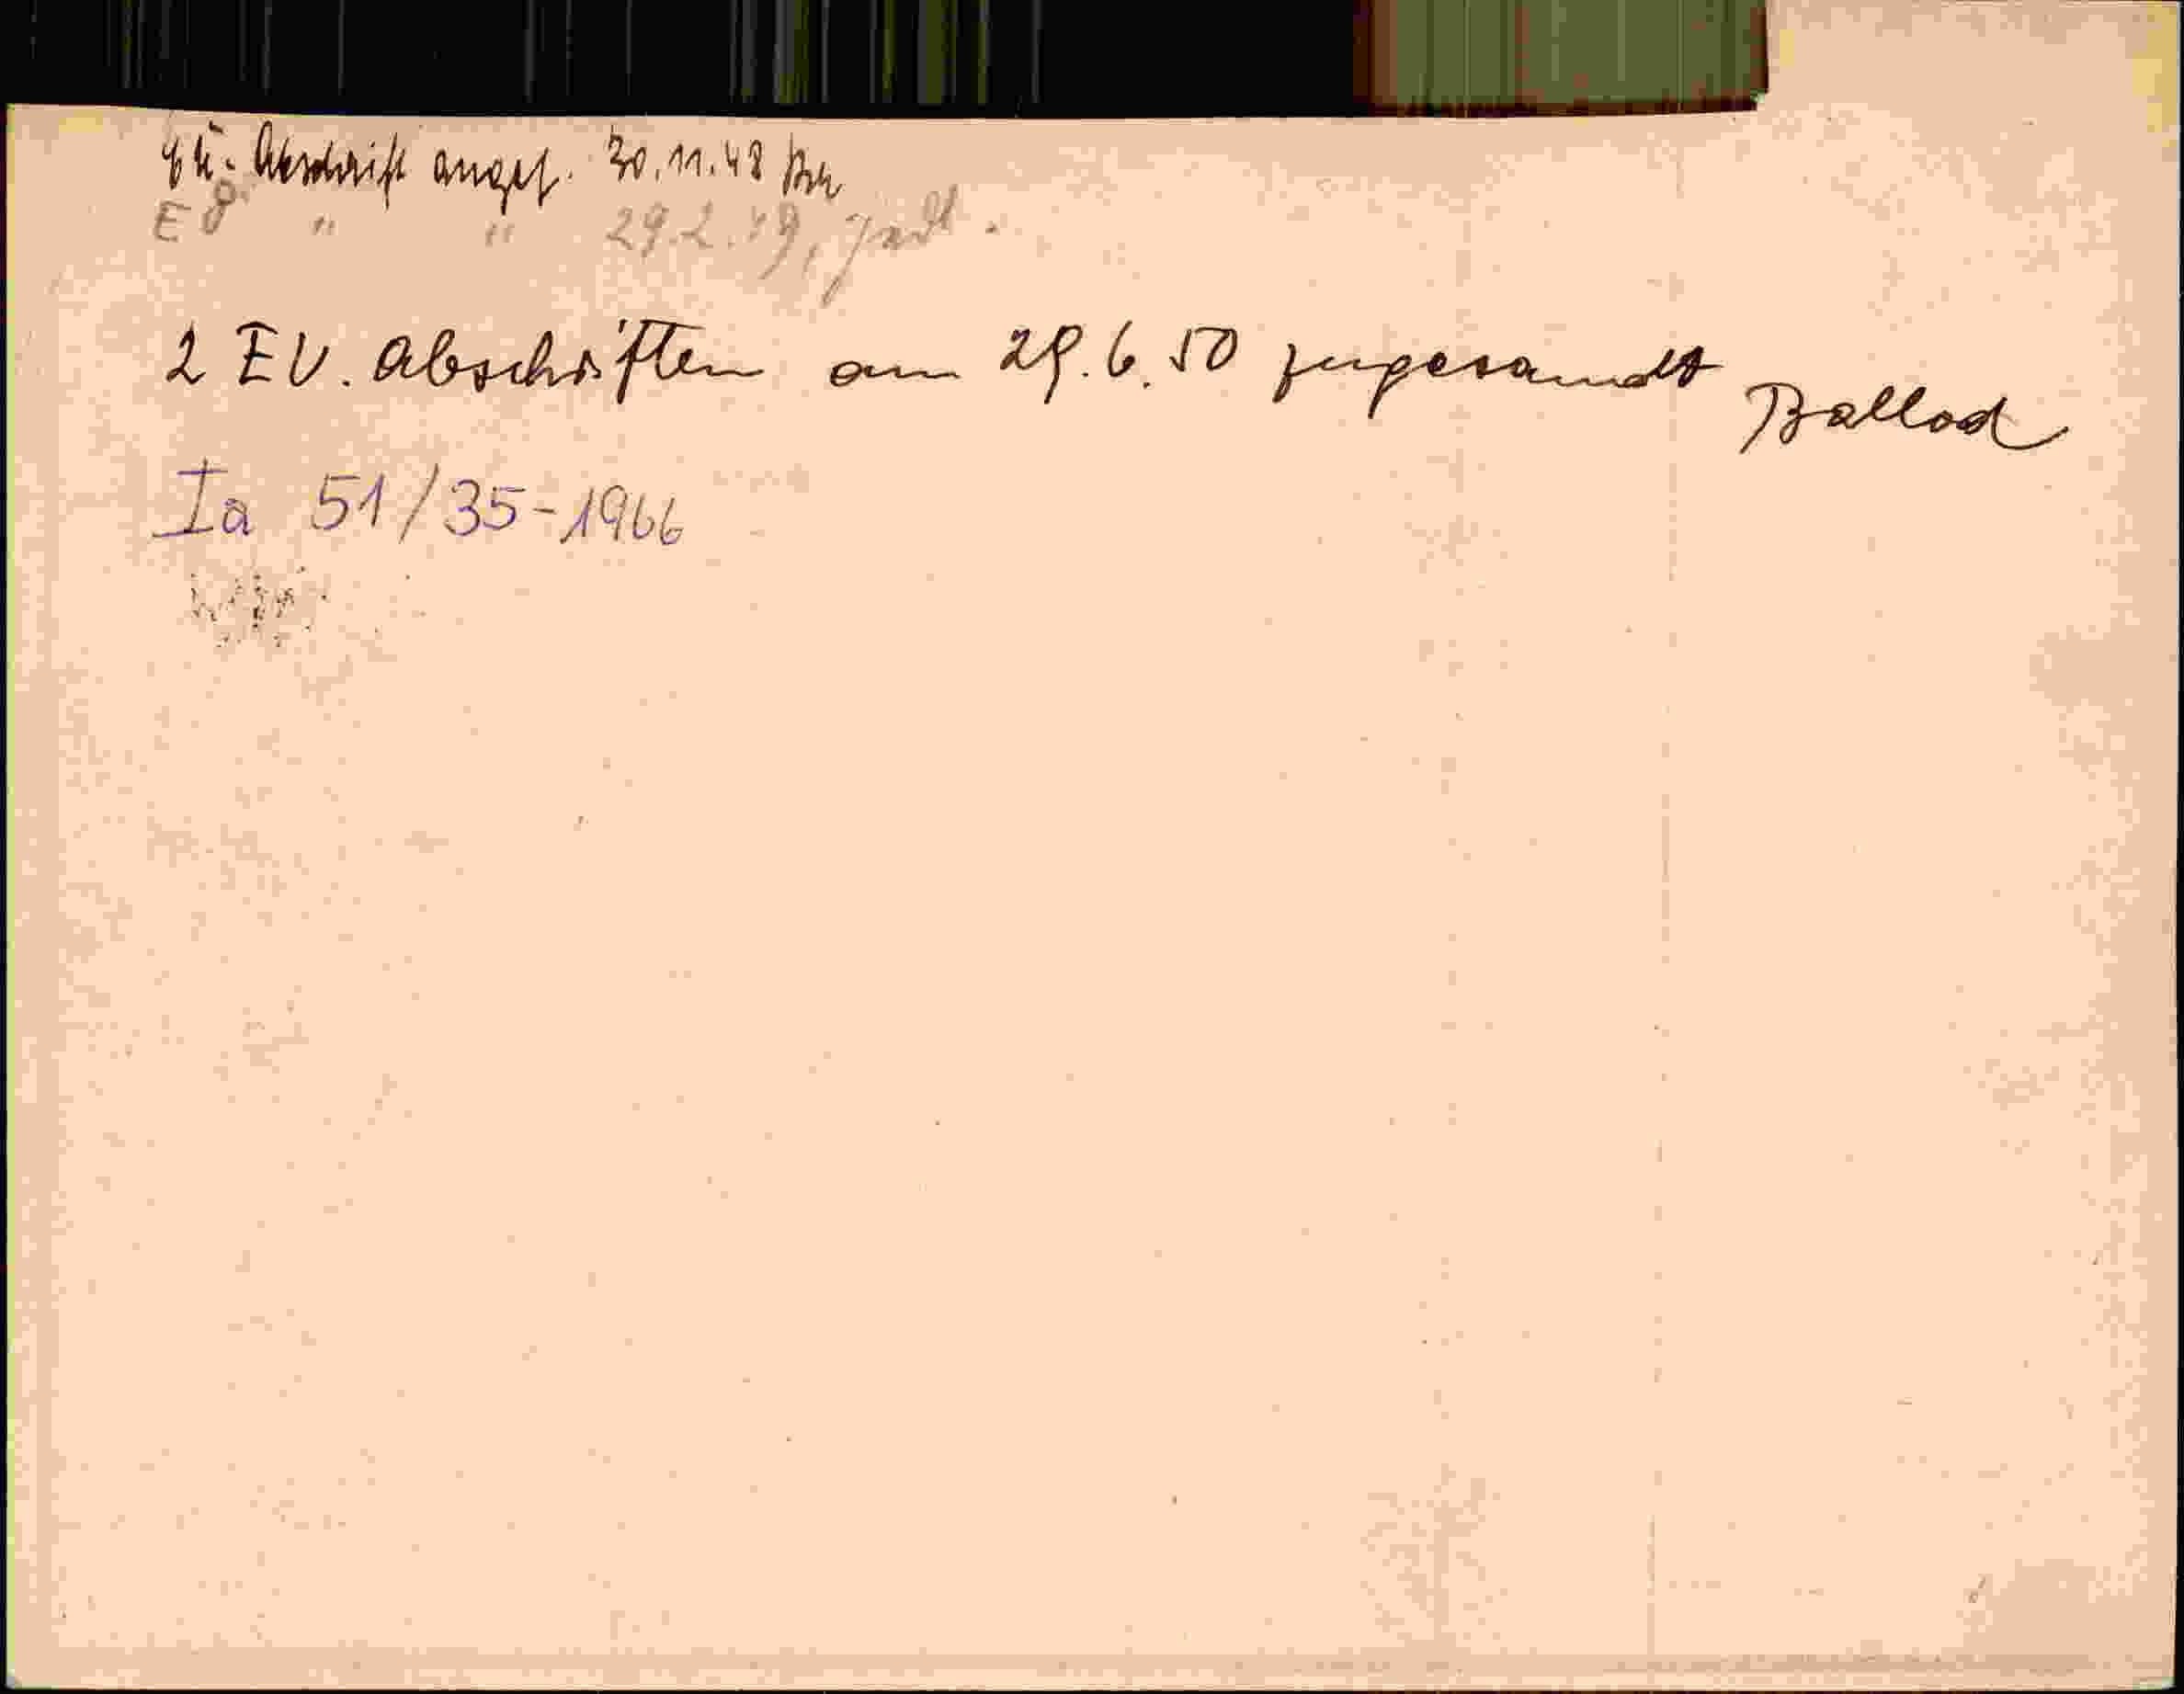 Abschrift angef. 30.11.48
E V " " 29.2.49,
2 EV. Abschriften am 29.6.50 zugesandt Ballod
Ia 51/35-1966